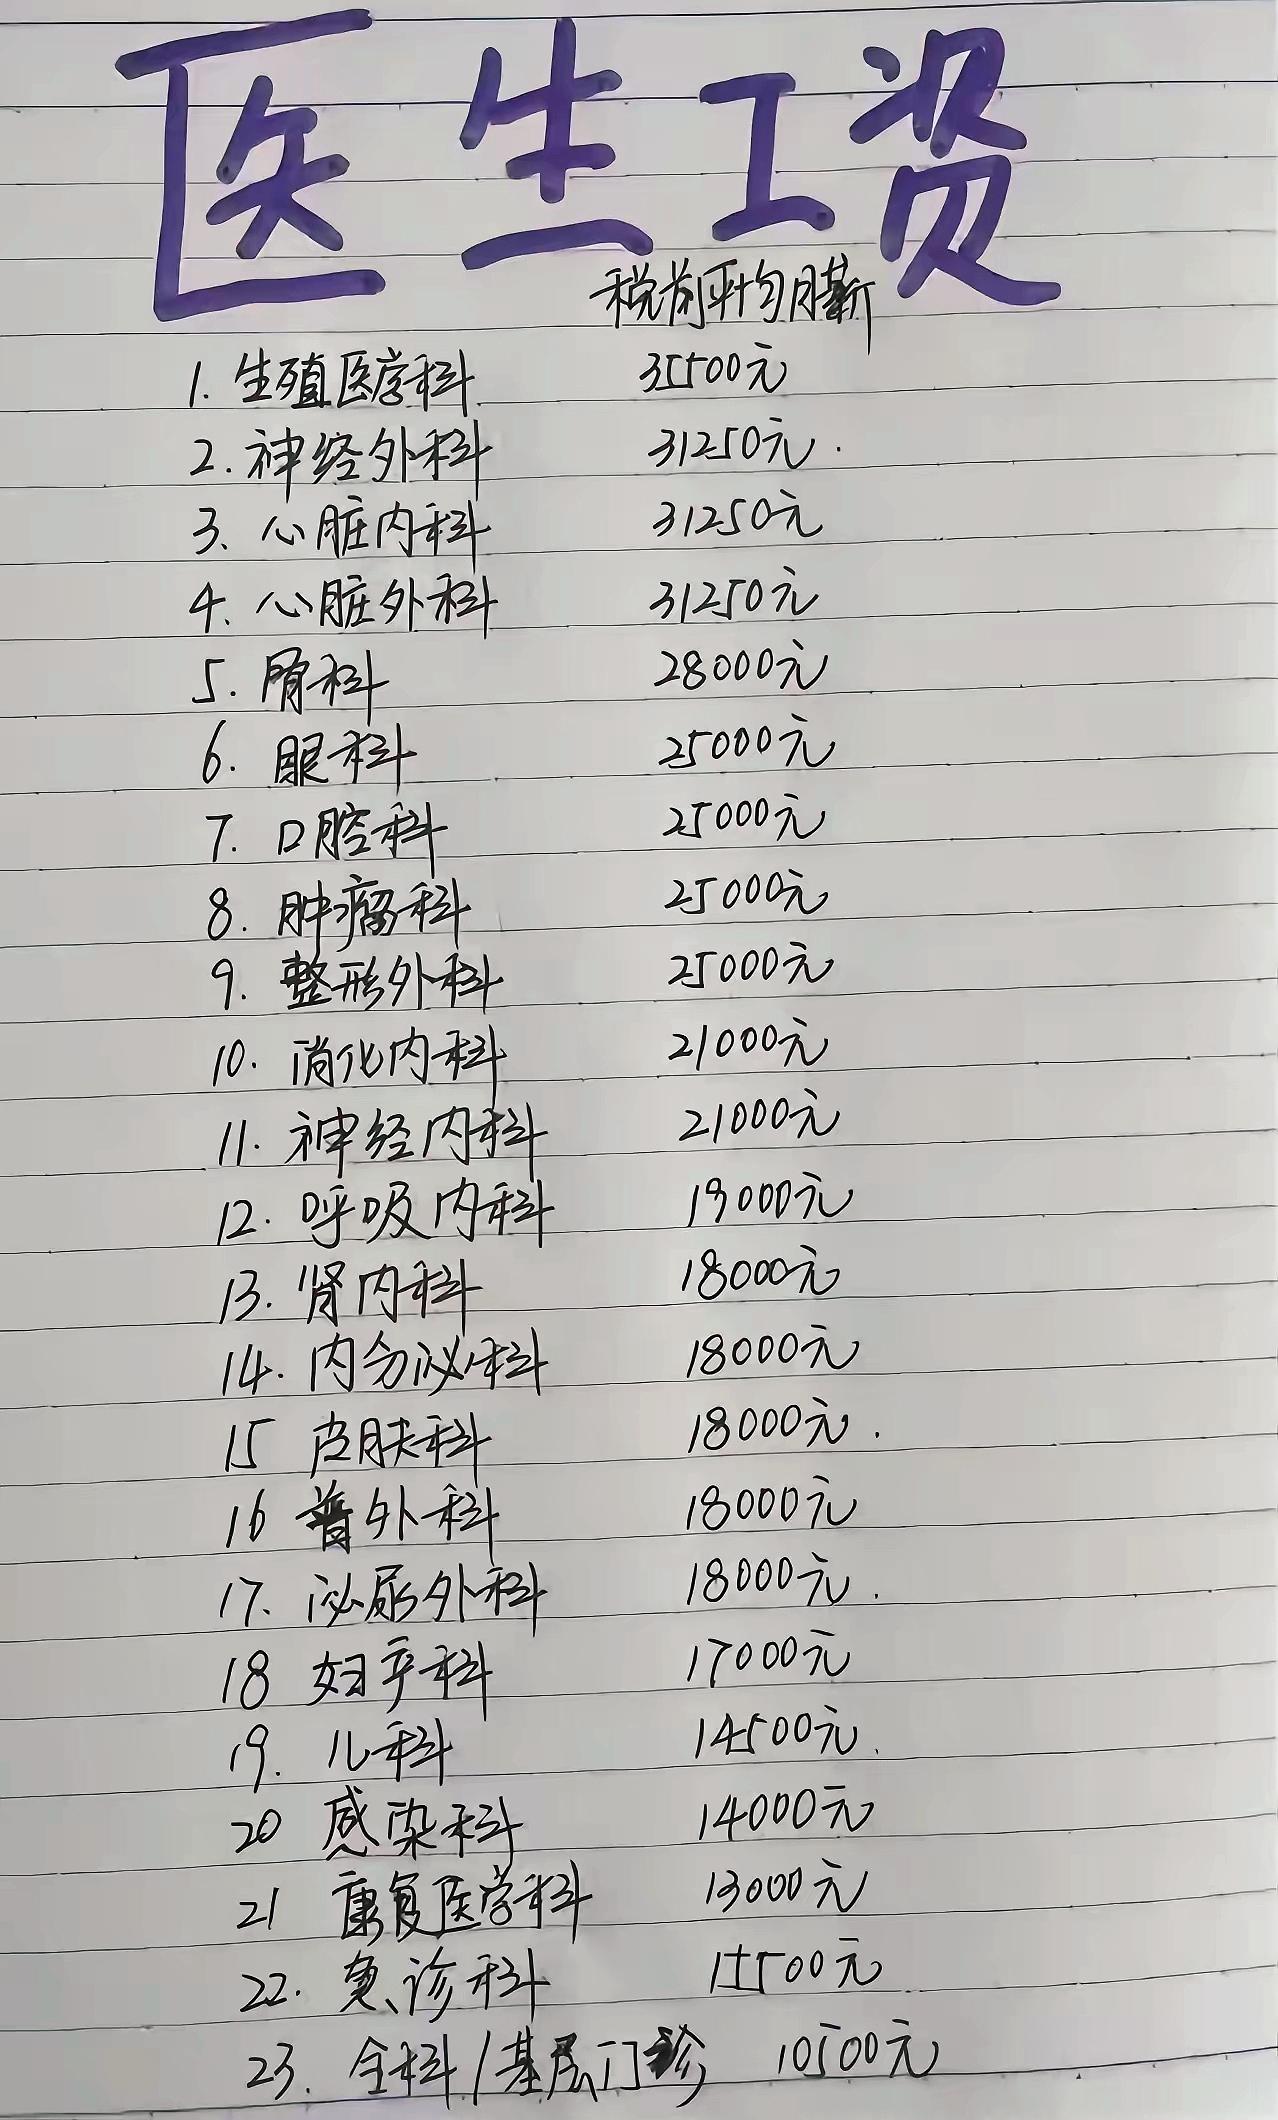 医生工资
税前平均月薪
1. 生殖医学科 35500元
2. 神经外科 31250元.
3、心脏内科 31250元
4、心脏外科 31250元
5. 骨科 28000元
6. 眼科 25000元
7. 口腔科 25000元
8. 肿瘤科 25000元
9. 整形外科 25000元
10. 消化内科 21000元
11. 神经内科 21000元
12. 呼吸内科 19000元
13. 肾内科 18000元
14. 内分泌科 18000元
15 皮肤科 18000元.
16 普外科 18000元
17. 泌尿外科 18000元.
18 妇产科 17000元
19. 儿科 14500元.
20 感染科 14000元
21 康复医学科 13000元
22. 急诊科 15500元
23. 全科/基层门诊 10500元